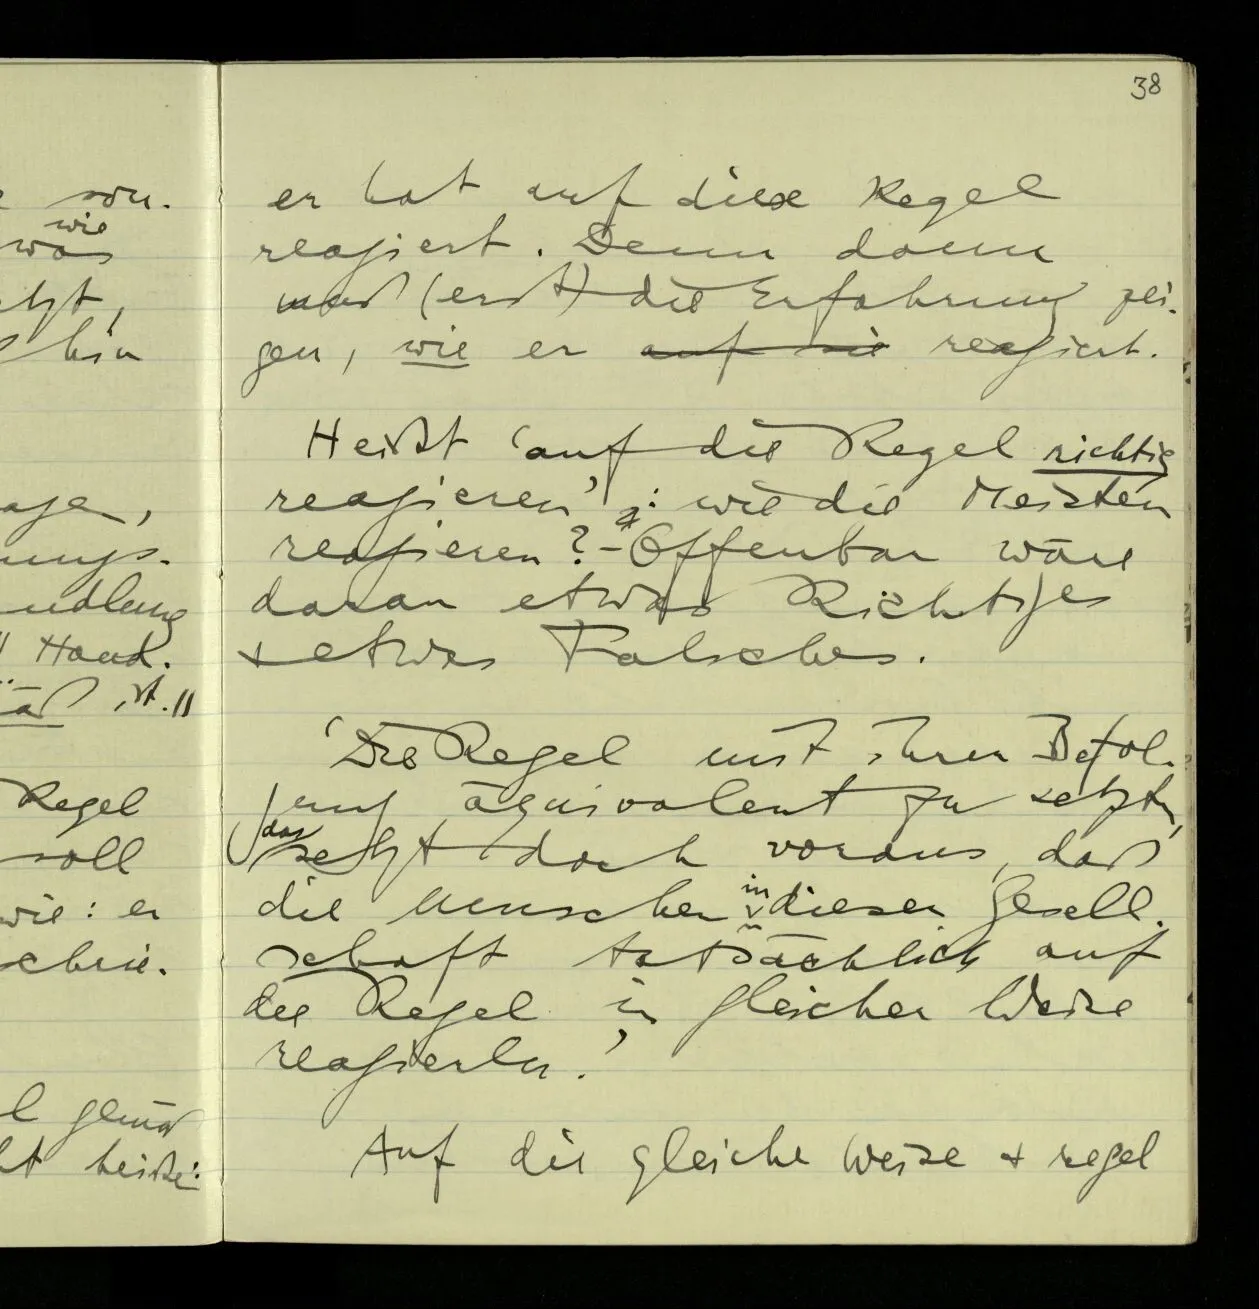 38
er hat auf diese Regel
reagiert. Denn dann
muß (erst) die Erfahrung zei-
gen, wie er auf sie reagiert.
Heißt 'auf die Regel richtig
reagieren': wie die Meisten
reagieren? – Offenbar wäre
daran etwas Richtiges
+ etwas Falsches.
'Die Regel mit ihrer Befol-
gung äquivalent zu setzen,
das setzt doch voraus, daß
die Menschen in dieser Gesell-
schaft tatsächlich auf
die Regel in gleicher Weise
reagierten.'
Auf die gleiche Weise + regel
son-
wie
was
hin
ungs-
ndlung
Hand-
ist.
Regel
soll
wie: er
schrie-
gemäß
heiße: